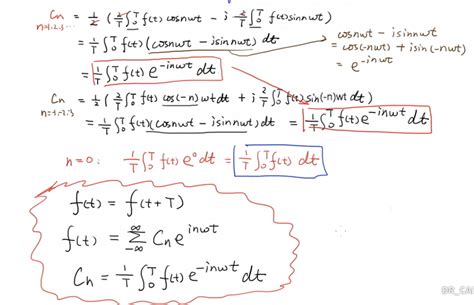 Cn = 1/2 (2/T ∫₀ᵀ f(t) cosnωt − i 2/T ∫₀ᵀ f(t) sinnωt)
n=1,2,3…
= 1/T ∫₀ᵀ f(t) (cosnωt − isinnωt) dt
cosnωt − isinnωt
= cos(-nωt) + isin(-nωt)
= e^-inωt
= 1/T ∫₀ᵀ f(t) e^-inωt dt
Cn = 1/2 (2/T ∫₀ᵀ f(t) cos(-n)ωt dt + i 2/T ∫₀ᵀ f(t) sin(-n)ωt dt)
= 1/T ∫₀ᵀ f(t)(cosnωt − isinnωt) dt = 1/T ∫₀ᵀ f(t) e^-inωt dt
n=0: 1/T ∫₀ᵀ f(t) e⁰ dt = 1/T ∫₀ᵀ f(t) dt
f(t) = f(t+T)
f(t) = ∑_-∞^∞ Cn e^inωt
Cn = 1/T ∫₀ᵀ f(t) e^-inωt dt
DR_CAN